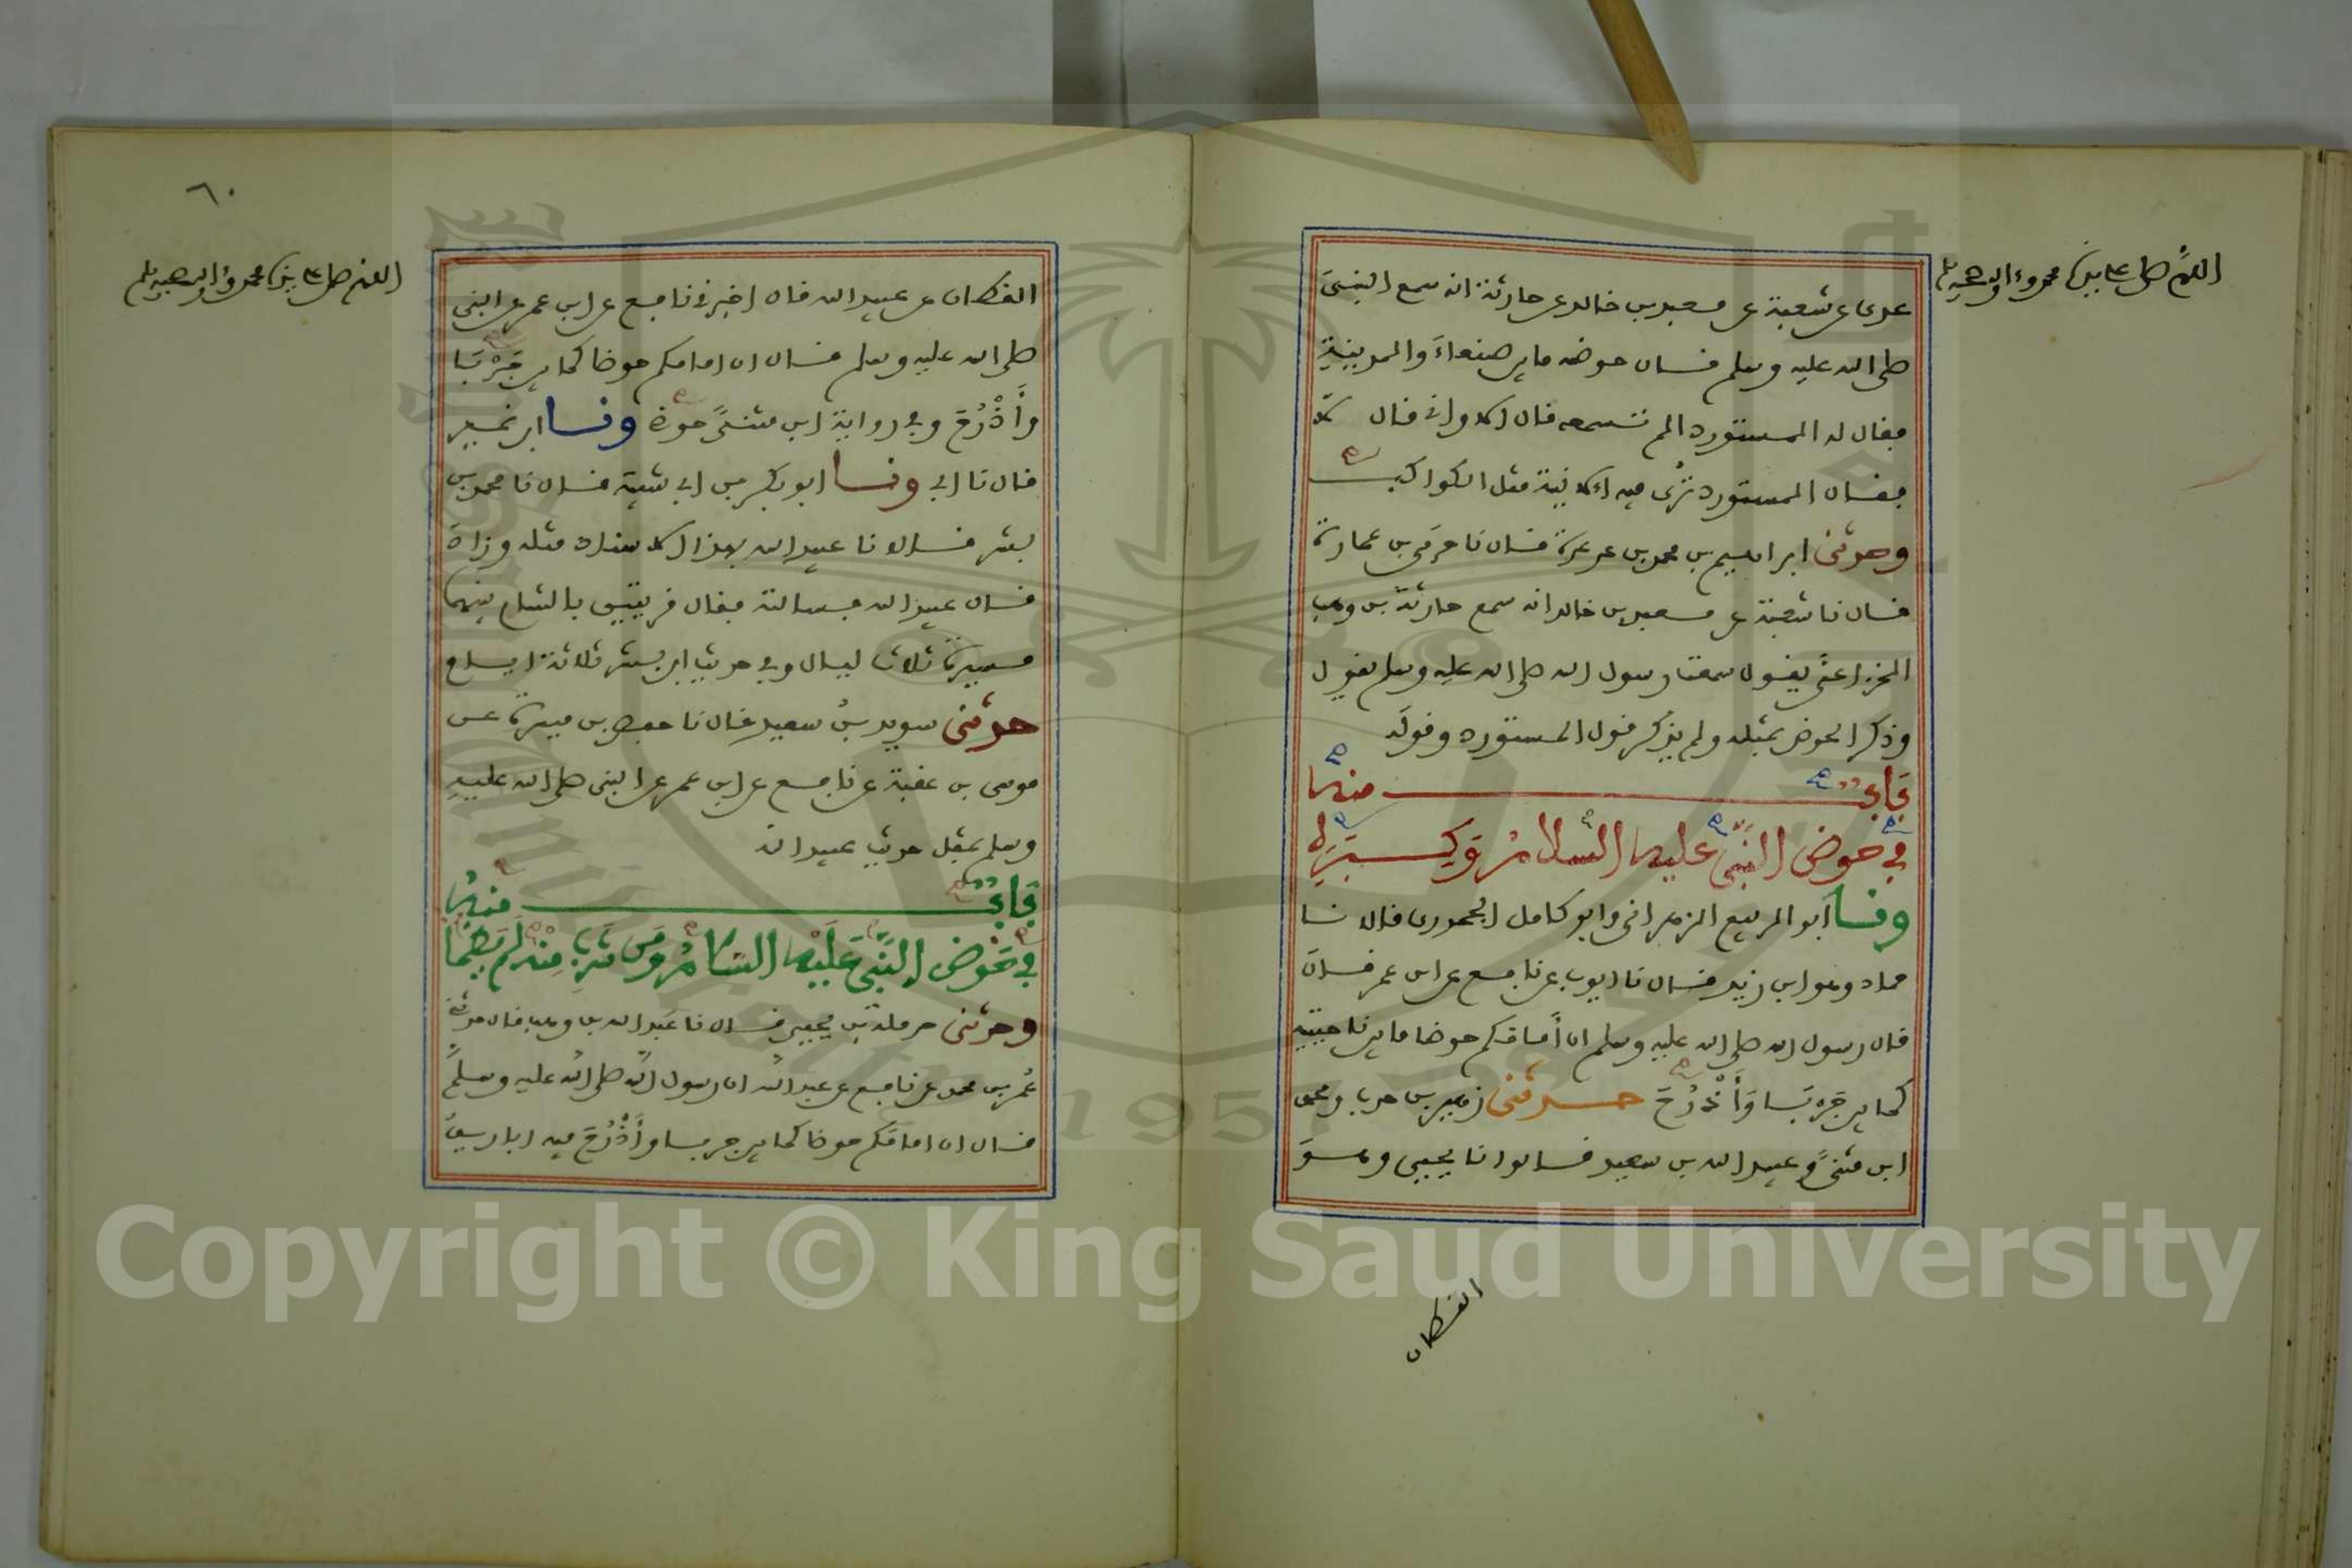 اللهم صل على سيدنا محمد وءاله وصحبه وسلم
عدى عن شعبة عن معبد بن خالد عن حارثة انه سمع النبي
صلى الله عليه وسلم قال حوضه ما بين صنعاء والمدينة
فقال له المستورد الم تسمعه قال الاواني قال لا
فقال المستورد تُرى فيه الآنية مثل الكواكب
وحدثنى ابراهيم بن محمد بن عرعرة قال نا حرمى بن عمارة
قال نا شعبة عن معبد بن خالد انه سمع حارثة بن وهب
الخزاعىَّ يقول سمعت رسول الله صلى الله عليه وسلم يقول
وذكر الحوض بمثله ولم يذكر قول المستورد وقولَه
بَابٌ منه
في حوض النَّبِيِّ عليه السلامُ وَكِبَرِهِ
وثنا أبو الربيع الزهراني وابو كامل الجحدرى قالا نا
حماد وهو ابن زيد قال نا ايوب عن نافع عن ابن عمر قال
قال رسول الله صلى الله عليه وسلم ان أمامَكم حوضا ما بين ناحيتيه
كما بين جَرْبَا وَأَذْرُحَ حدثنى زهير بن حرب ومحمد
ابن مثنىً وعبيد الله بن سعيد قالوا نا يحيى وهو
القطان
٦٠
اللهم صل على سيدنا محمد وءاله وصحبه وسلم
القطان عن عبيد الله قال اخبرني نافع عن ابن عمر عن النبى
صلى الله عليه وسلم قال ان امامكم حوضا كما بين جَرْبَا
وأَذْرُحَ وفي رواية ابن مثنىً حوضى وثنا ابن نمير
قال نا ابي وثنا ابو بكر بن ابي شيبة قال نا محمد بن
بشر قالا نا عبيد الله بهذا الاسناد مثله وزاد
قال عبيد الله فسالته فقال قريتين بالشام بينهما
مسيرة ثلاث ليال وفي حديث ابن بشر ثلاثة ايام
حدثنى سويد بنُ سعيد قال نا حفص بن ميسرة عن
موسى بن عقبة عن نافع عن ابن عمر عن النبى صلى الله عليه
وسلم بمثل حديث عبيد الله
بَابٌ منهُ
في حَوْض النَّبِيِّ عَلَيْه السلامُ وَمَن شَرِبَ مِنْهُ لَم يَظْمَا
وحدثنى حرملة بن يحيى قال نا عَبد الله بن وهب قال حدثني
عُمر بن محمد عن نافع عن عبد الله ان رسول اللهِ صلى اللهُ عليه وسلم
قال ان امامَكم حوضا كما بين جربا وأَذْرُحَ فيه اباريقُ
Copyright © King Saud University
1957